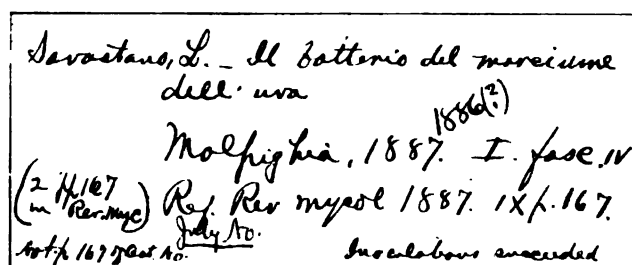 Savastano, L. – Il batterio del marciume
dell' uva
1886(?)
Malpighia, 1887. I. fasc. IV
(2 pp. 167 in Rev. Myc)
Ref. Rev mycol 1887. IX p. 167.
July No.
not p 167 of Oct. No.
Inoculations succeeded